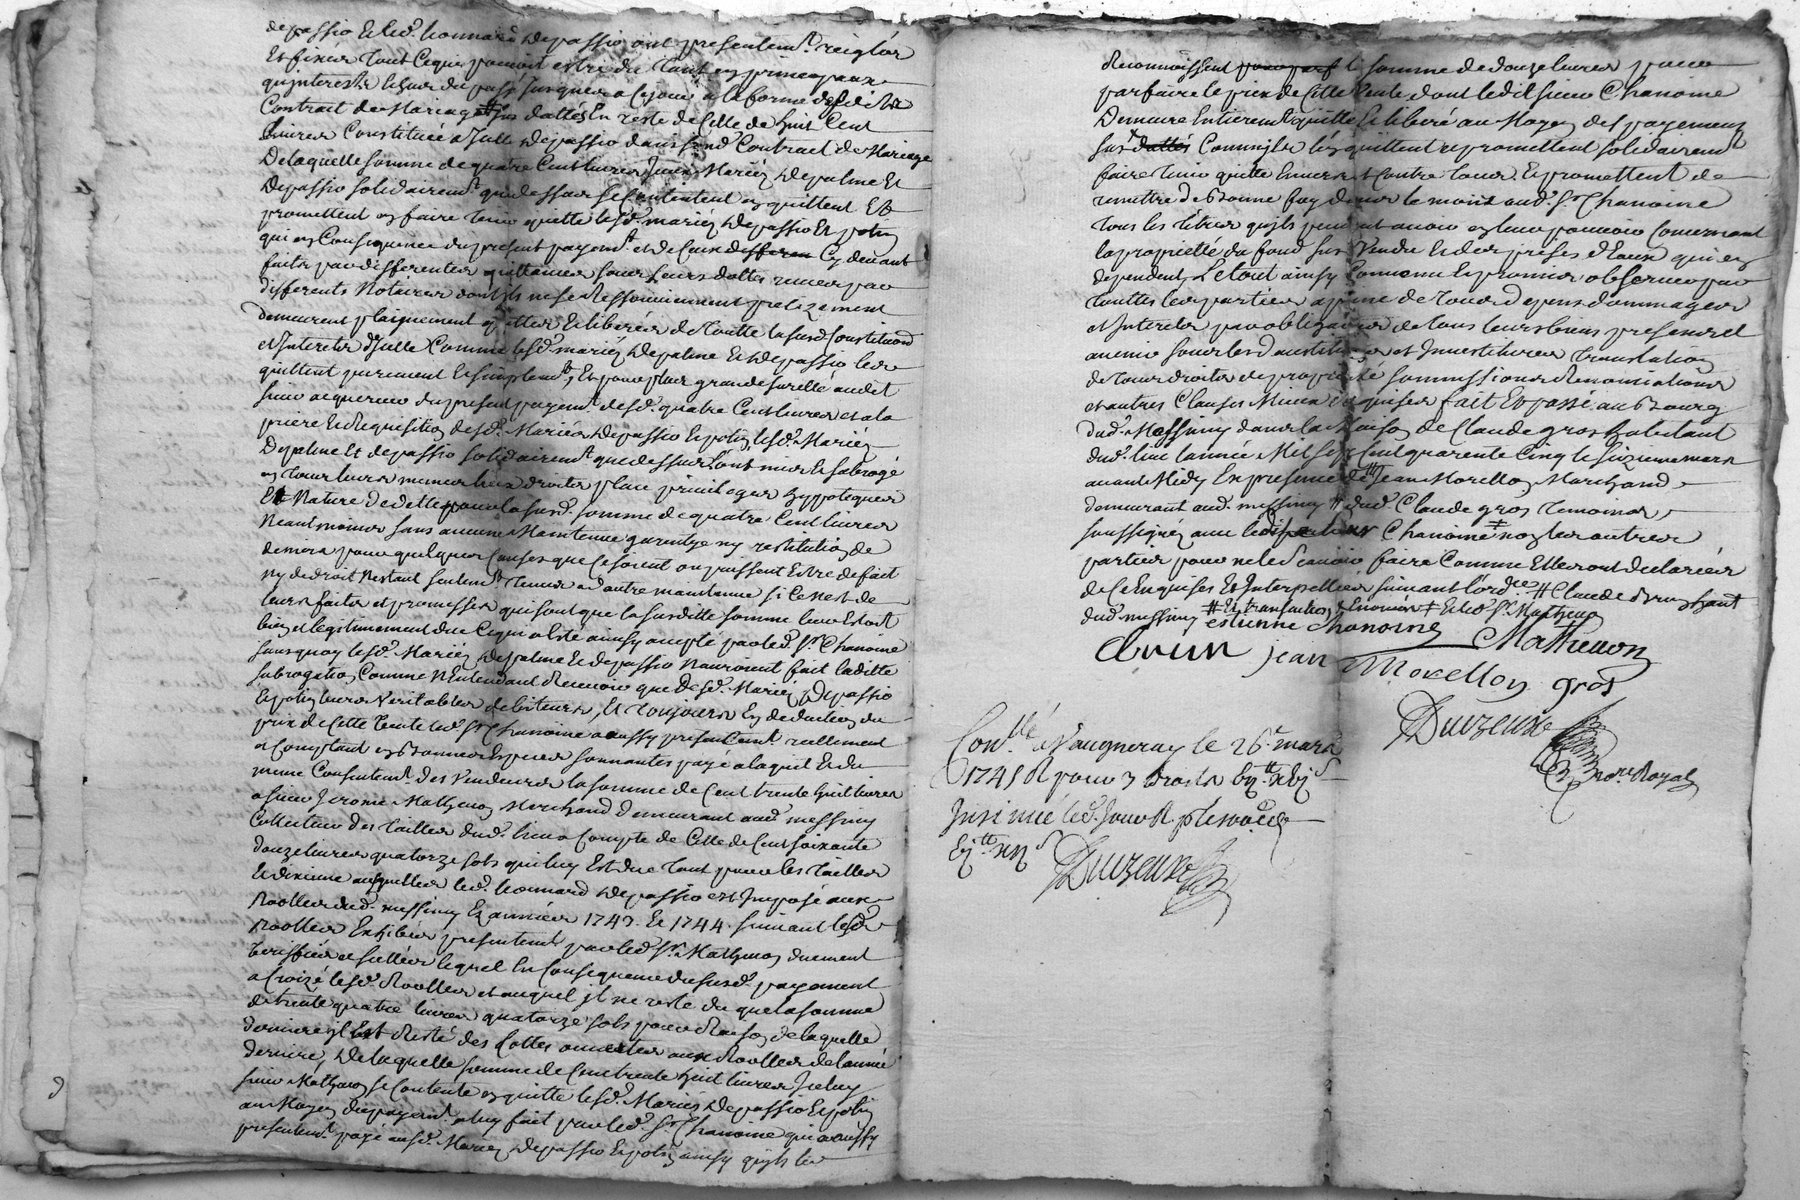 depassio et led. Leonnard depassio ont presentemt. reiglér
et fixér tout ce que pouvoit estre du tant en principaux
qu'interests le jour du passé jusques a ce jour a la forme desd.
Contrat de Mariage # sus dattés en reste de Celle de huit Cent
Livres Constituée a Julle depassio dans sond. Contract de Mariage
De laquelle somme de quatre Cent livres Iceux Mariéz depalme et
Depassio solidairemt. que dessus se Contentent en quittent et
promettent en faire tenir quitte lesd. mariéz depassio et potin
qui en Consequence du present payemt. et de Ceux differen Cy devant
faits par differentes quittances sous Leurs dattes receues par
differents Notaires dont ils ne se Ressouviennent precizement
demeurent plainement quittes et liberés de toutte la susd. Constituon
et Interets d'Jcelle Comme lesd. mariéz depalme et depassio les
quittent purement et simplemt., Et pour plus grande suretté audit
sieur acquereur du present payemt. desd. quatre Cent livres et a la
priere et Requisition desd. Mariés depassio et potin, lesd. Mariéz
Depalme et depassio solidairemt. que dessus l'ont mis et subrogé
en tous leurs memes lieux droits place privileges hyppoteques
Et Nature de dette pour la susd. somme de quatre Cent livres
Neantmoins sans aucune Maintenue garentye ny restitution de
deniers pour quelques Causes que ce soient ou pussent Estre de fait
ny de droit n'estant seulemt. tenus a d'autre maintenue si ce n'est de
leurs faits et promesses qui sont que la susditte somme leur estoit
bien et legitimement due Ce qui a Esté ainsy accepté par led. Sr. Chanoine
sans quoy lesd. Mariéz depalme et depassio n'auroient fait laditte
subrogation Comme n'Entendant Recevoir que desd. Mariéz depassio
Et potin leurs veritables debiteurs, Et toujours En deduction du
prix de Cette Vente led. Sr. Chanoine a aussy presentemt. reellement
et Comptant en bonnes Especes sonnantes payé a la quel et du
meme Consentemt. des Vendeurs la somme de Cent trente huit livres
a sieur Jerome Mathevon Marchand demeurant aud. messimy
Collecteur des Tailles dud. lieu a Compte de Celle de Cent soixante
douze livres quatorze sols qui luy Est due tant pour les Tailles
et dixieme auxquelles led. Leonnard depassio est Imposé aux
Roolles dud. messimy Ez années 1743. Et 1744. suivant lesd.
Roolles Exhibés presentemt. par led. Sr. Mathevon duement
veriffiés et scellés lequel En Consequence du susd. payement
a Croizé lesd. Roolles et auquel il ne reste du que la somme
de trente quatre livres quatorze sols pour Raison de laquelle
derniere il Est Resté des Cottes ouvertes aux Roolles de l'année
derniere, de laquelle somme de Cent trente huit livres Iceluy
sieur Mathevon se Contente en quitte lesd. Mariés depassio et potin
au Moyen du payemt. a luy fait par led. Sr. Chanoine qui a aussy
presentemt. payé ausd. Mariéz depassio et potin ainsy qu'ils le
Reconnoissent la somme de douze livres pour
parfaire le prix de Cette Vente dont ledit sieur Chanoine
Demeure Entierement quitte et liberé au Moyen des payements
susd. dattés Comme les quittent et promettent solidairemt.
faire tenir quitte Envers et Contre tous. Et promettent de
remettre de bonne foy dans le mois aud. Sr. Chanoine
tous les titres qu'ils peuvent avoir en leur pouvoir Concernant
la proprietté du fond sus Vendu et des prises d'Eaux qui en
dependent, Le tout ainsy Convenu et promis observer par
touttes les parties a peine de tous depens dommages
et Interets par obligation de tous leurs biens presents et
avenir sous les d'austitions et Investitures translation
de tous droits et proprieté soummissions Renonciations
et autres Clauses Nece. requises fait Et passé au Bourg
dud. Messimy dans la Maison de Claude gros habitant
dud. lieu l'année Mil Sept Cent quarente Cinq le seizieme mars
avant Midy En presence de Jean Morellon Marchand
demeurant aud. messimy # dud. Claude gros temoins
soussignéz avec led. Chanoine # non les autres
parties pour ne le sçavoir faire Comme Elles ont declarés
de Ce Enquises Et Interpellées suivant l'ordce. # Claude Brun habit.
dud. messimy # et led. Sr. Mathevon
estienne chanoine Mathevon
C Brun jean Morellon gros
Duizeux
nore. Royal
Conllé. a Vaugneray le 26e. mars
1745 R. pour 3 droits
Insinué led. jour R.
Duizeux